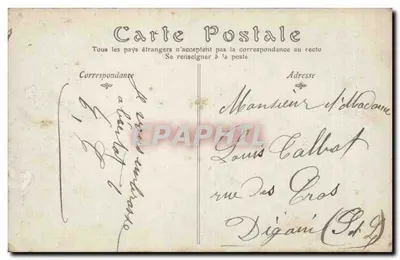 Carte Postale
Tous les pays étrangers n'acceptent pas la correspondance au recto
Se renseigner à la poste
Correspondance
Je vous embrasse
a bientôt
Adresse
Monsieur et Madame
Louis Talbot
rue des
Digoin (S. et L)